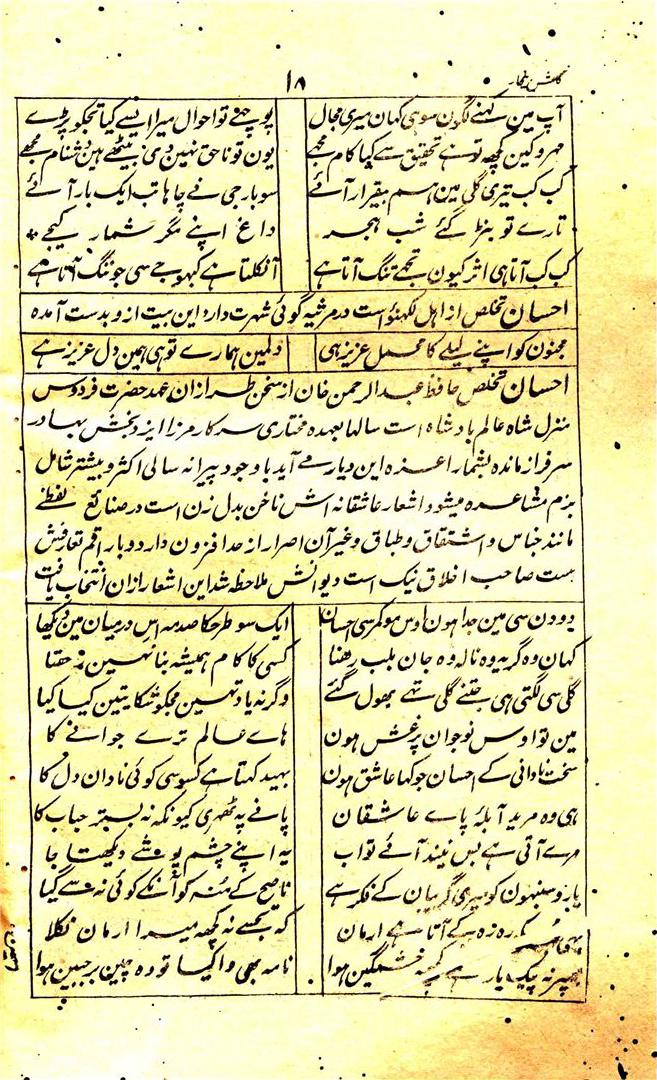 گلشن بیخار
۱۸
آپ مین کہنے لگون سو ہی کہان میری مجال پوچہتے تو احوال میرا ایسے کیا تجکو پڑے
مہر و کین کچھ تو ہے تحقیق ہے کیا کام مجھے یون تو ناحق نہین دی بیٹھے ہین دشنام مجھے
کب کب تیری گلی مین ہم بیقرار آئے سو بار جی نے چاہا تب ایک بار آئے
تارے تو گئے شب ہجر داغ اپنے مگر شمار کیجے
کب کب آتا ہی اثر کیون تجھے ننگ آتا ہے آ نکلتا ہے کبہو جے سی جو تنگ آتا ہے
احسان تخلص از اہل لکھنؤ است در مرثیہ گوئی شہرت دارد این بیت ازو بدست آمدہ
مجنون کو اپنے لیلے کا محمل عزیز ہی دلمین ہمارے تو ہی ہمین دل عزیز ہے
احسان تخلص حافظ عبد الرحمن خان از سخن طرازان عہد حضرت فردوس
منزل شاہ عالم بادشاہ است سالہا بعہدہ مختاری سرکار مرزا ایزد بخش بہادر
سرفراز ماندہ بشمار اعزہ این دیار مے آید باوجود پیرانہ سالی اکثر و بیشتر شامل
بزم مشاعرہ میشود اشعار عاشقانہ اش ناخن بدل زن است در صنائع لفظے
مانند جناس و اشتقاق و طباق و غیر آن اصرار از حد افزون دارد و با راقم تعارفش
ہست صاحب اخلاق نیک است دیوانش ملاحظہ شد این اشعار ازان انتخاب یافت
دو دن سی مین جدا ہون اوس مو کمر سی احسان ایک سو طرحکا صدمہ اس درمیان مین دیکھا
کہان وہ گریہ وہ نالہ وہ جان بلب رھنا کسی کا کام ہمیشہ بنا نہین رہتا
گلی سی لگتی ہی جتنے گلی تھے بھول گئے وگرنہ یاد تہین مجکو شکایتین کیا کیا
مین تو اوس نوجوان پہ غش ہون ہاے عالم ترے جوانے کا
سخت نادانی کے احسان جو کہا عاشق ہون بہید کہتا ہے کسو سی کوئی نادان دل کا
ہی وہ مرید آبلۂ پاے عاشقان پانے پہ ٹھہری کیونکہ نہ بستر حباب کا
آتی ہے بس نیند آئے تو اب یہ اپنے چشم دیکھتا جا
یارو سنبہون کو میری گریبان کے فکر ہے ناصح کے منہ کو آنکے کوئی نہ سے گیا
آتا ہے ارمان کہ تجسے نہ کچھ میرا ارمان نکلا
پھر نہ پیک یار خشمگین ہوا نامہ بھی وا کیا تو وہ چین بر جبین ہوا